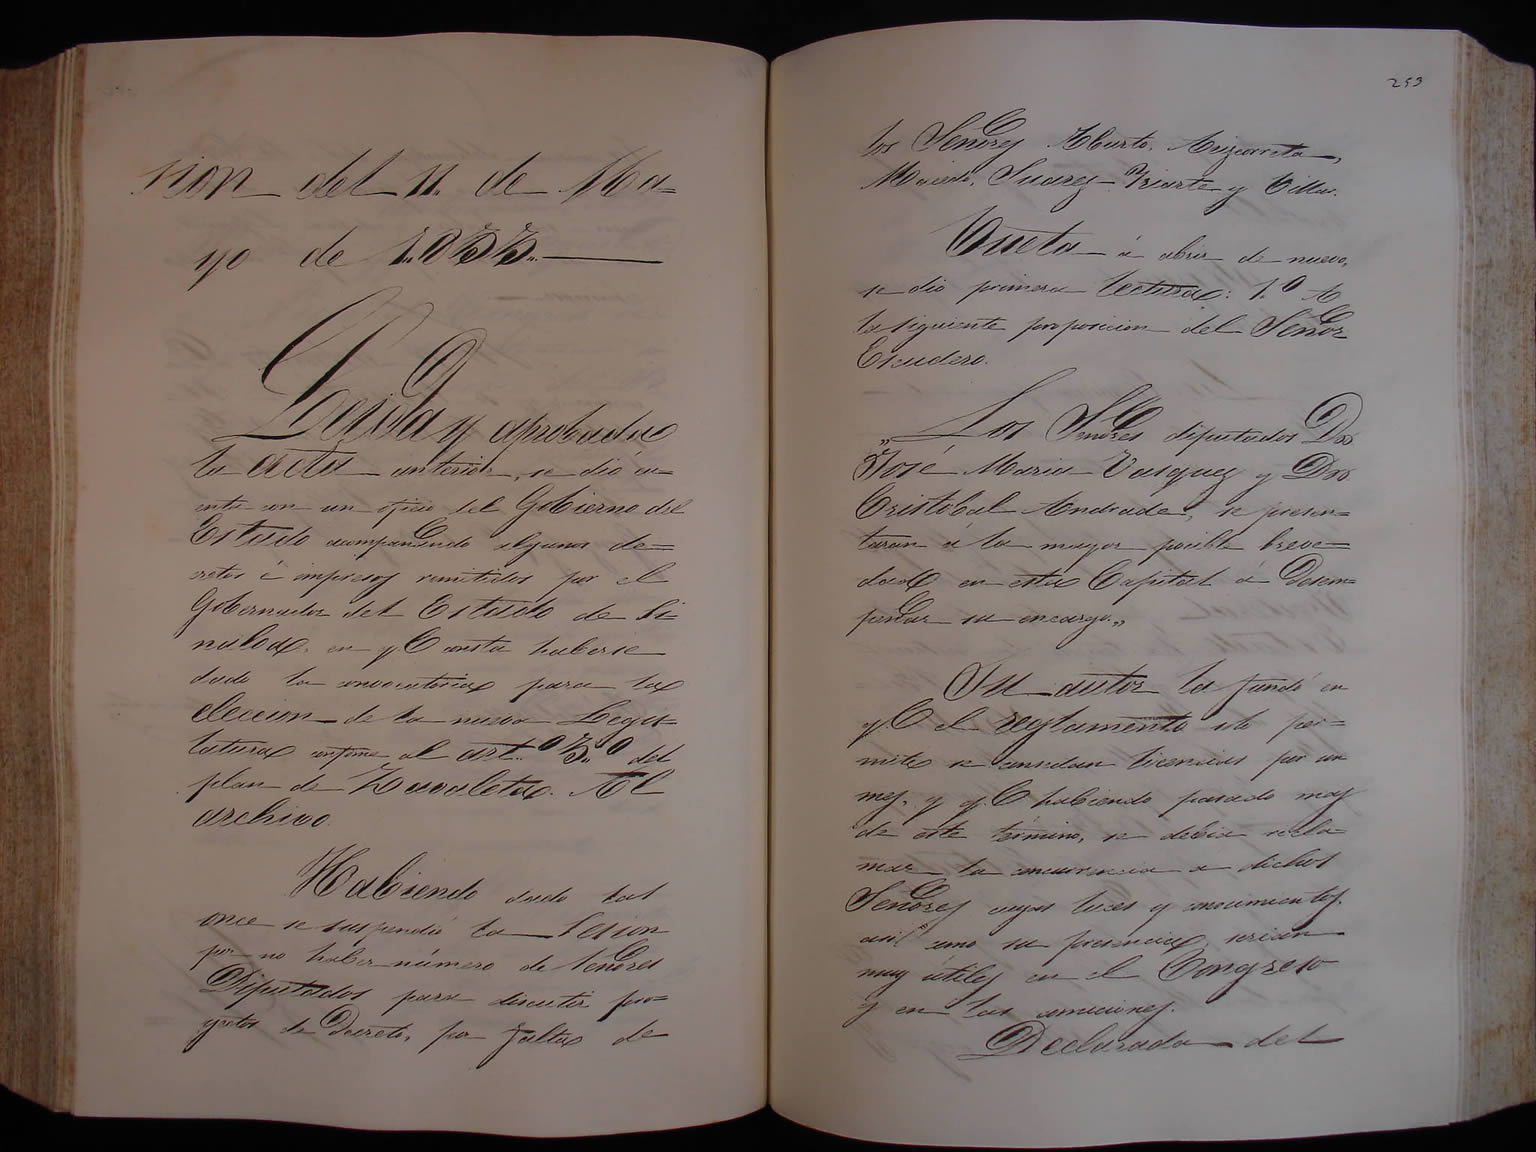 sion del 11. de Ma=
yo de 1.833.
Leida y aprobada
la acta anterior, se dió cu=
enta con un oficio del Gobierno del
Estado acompañando algunos de=
cretos é impresos remitidos por el
Gobernador del Estado de Si=
naloa, en q.e consta haberse
dado la convocatoria para la
eleccion de la nueva Legis=
latura conforme al art.o 3.o del
plan de Zavaleta. Al
archivo.
Habiendo dado las
once se suspendió la Sesion
por no haber número de Señores
Diputados para discutir pro=
yectos de Decreto, por falta de
253
los Señores Aburto, Arizcorreta,
Macedo, Suarez Yriarte y Villa.
Vuelta á abrir de nuevo,
se dio primera lectura: 1.o A
la siguiente proposicion del Señor
Escudero.
„Los Señores diputados Don
José Maria Vasquez y Don
Cristobal Andrade, se presen=
taran á la mayor posible breve=
dad en esta Capital á desem=
peñar su encargo.„
Su autor la fundó en
q.e el reglamento solo per=
mite se concedan licencias por un
mes, y q.e habiendo pasado mas
de este término, se debia recla=
mar la concurrencia a dichos
Señores cuyas luces y conocimientos,
asi como su presencia, serian
muy útiles en el Congreso
y en las comiciones.
Declarada del